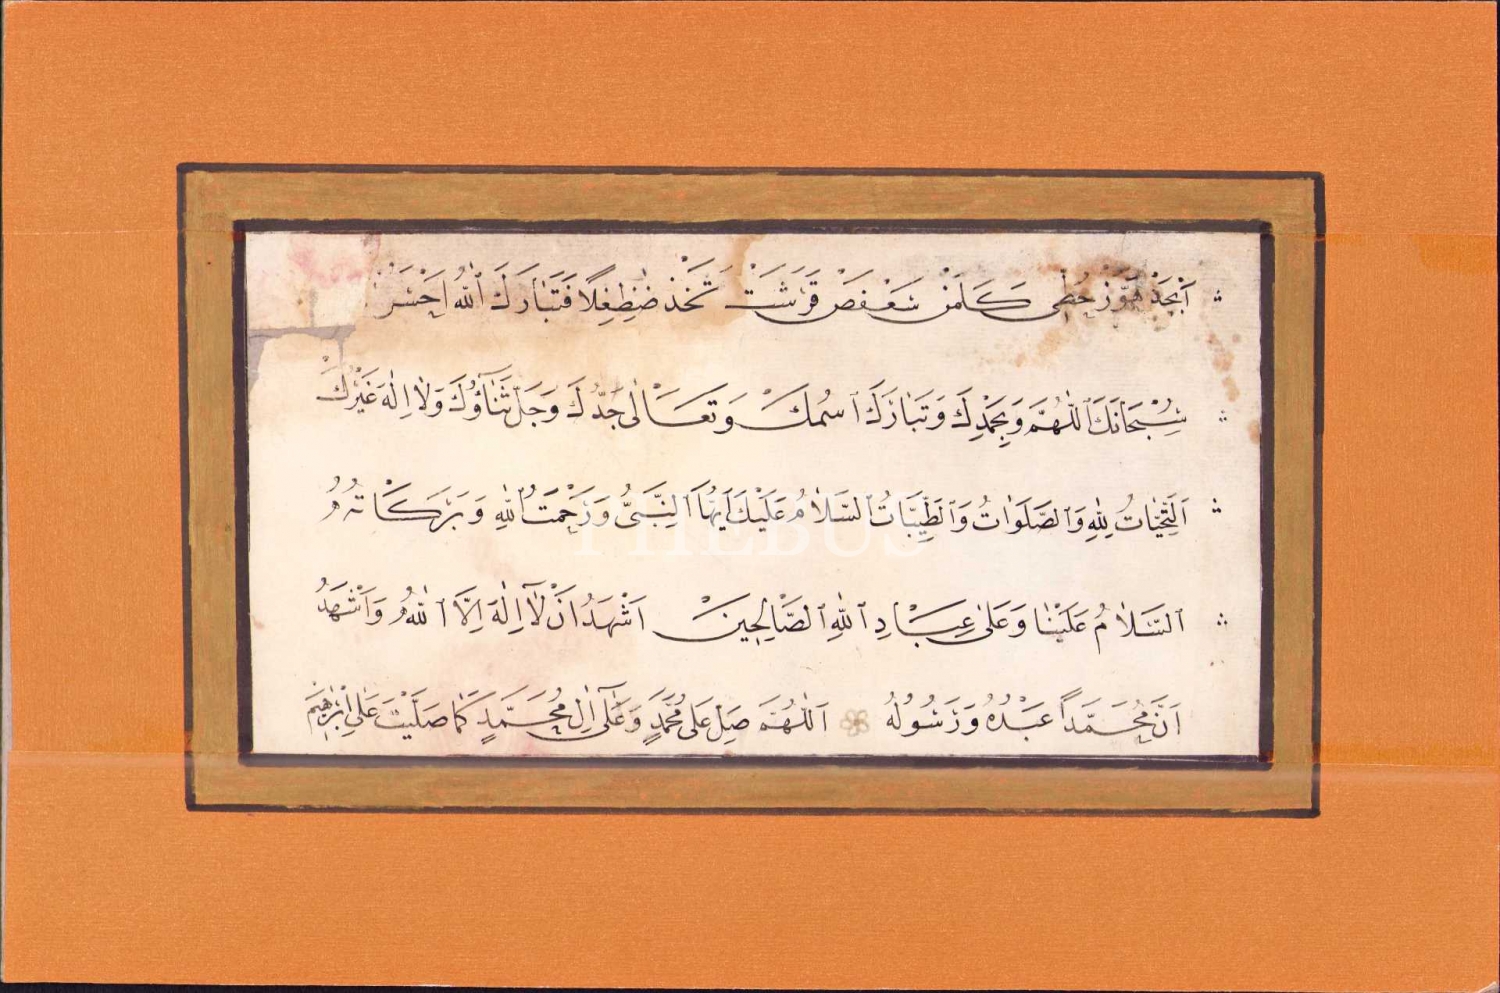 اَبْجَدْ هَوَّزْ حُطِّى كَلَمَنْ سَعْفَصْ قَرَشَتْ ثَخَذْ ضَظِغِلًا فَتَبَارَكَ اللهُ اَحْسَنُ
سُبْحَانَكَ اللّٰهُمَّ وَبِحَمْدِكَ وَتَبَارَكَ اسْمُكَ وَتَعَالٰى جَدُّكَ وَجَلَّ ثَنَآؤُكَ وَلَا اِلٰهَ غَيْرُكَ
اَلتَّحِيَّاتُ لِلّٰهِ وَالصَّلَوَاتُ وَالطَّيِّبَاتُ السَّلَامُ عَلَيْكَ اَيُّهَا النَّبِىُّ وَرَحْمَتُ اللهِ وَبَرَكَاتُهُ
اَلسَّلَامُ عَلَيْنَا وَعَلٰى عِبَادِ اللهِ الصَّالِحِينَ اَشْهَدُ اَنْ لَآ اِلٰهَ اِلَّا اللهُ وَاَشْهَدُ
اَنَّ مُحَمَّداً عَبْدُهُ وَرَسُولُهُ اَللّٰهُمَّ صَلِّ عَلٰى مُحَمَّدٍ وَعَلٰٓى اٰلِ مُحَمَّدٍ كَمَا صَلَّيْتَ عَلٰى اِبْرٰهِيمَ
PHEBUS